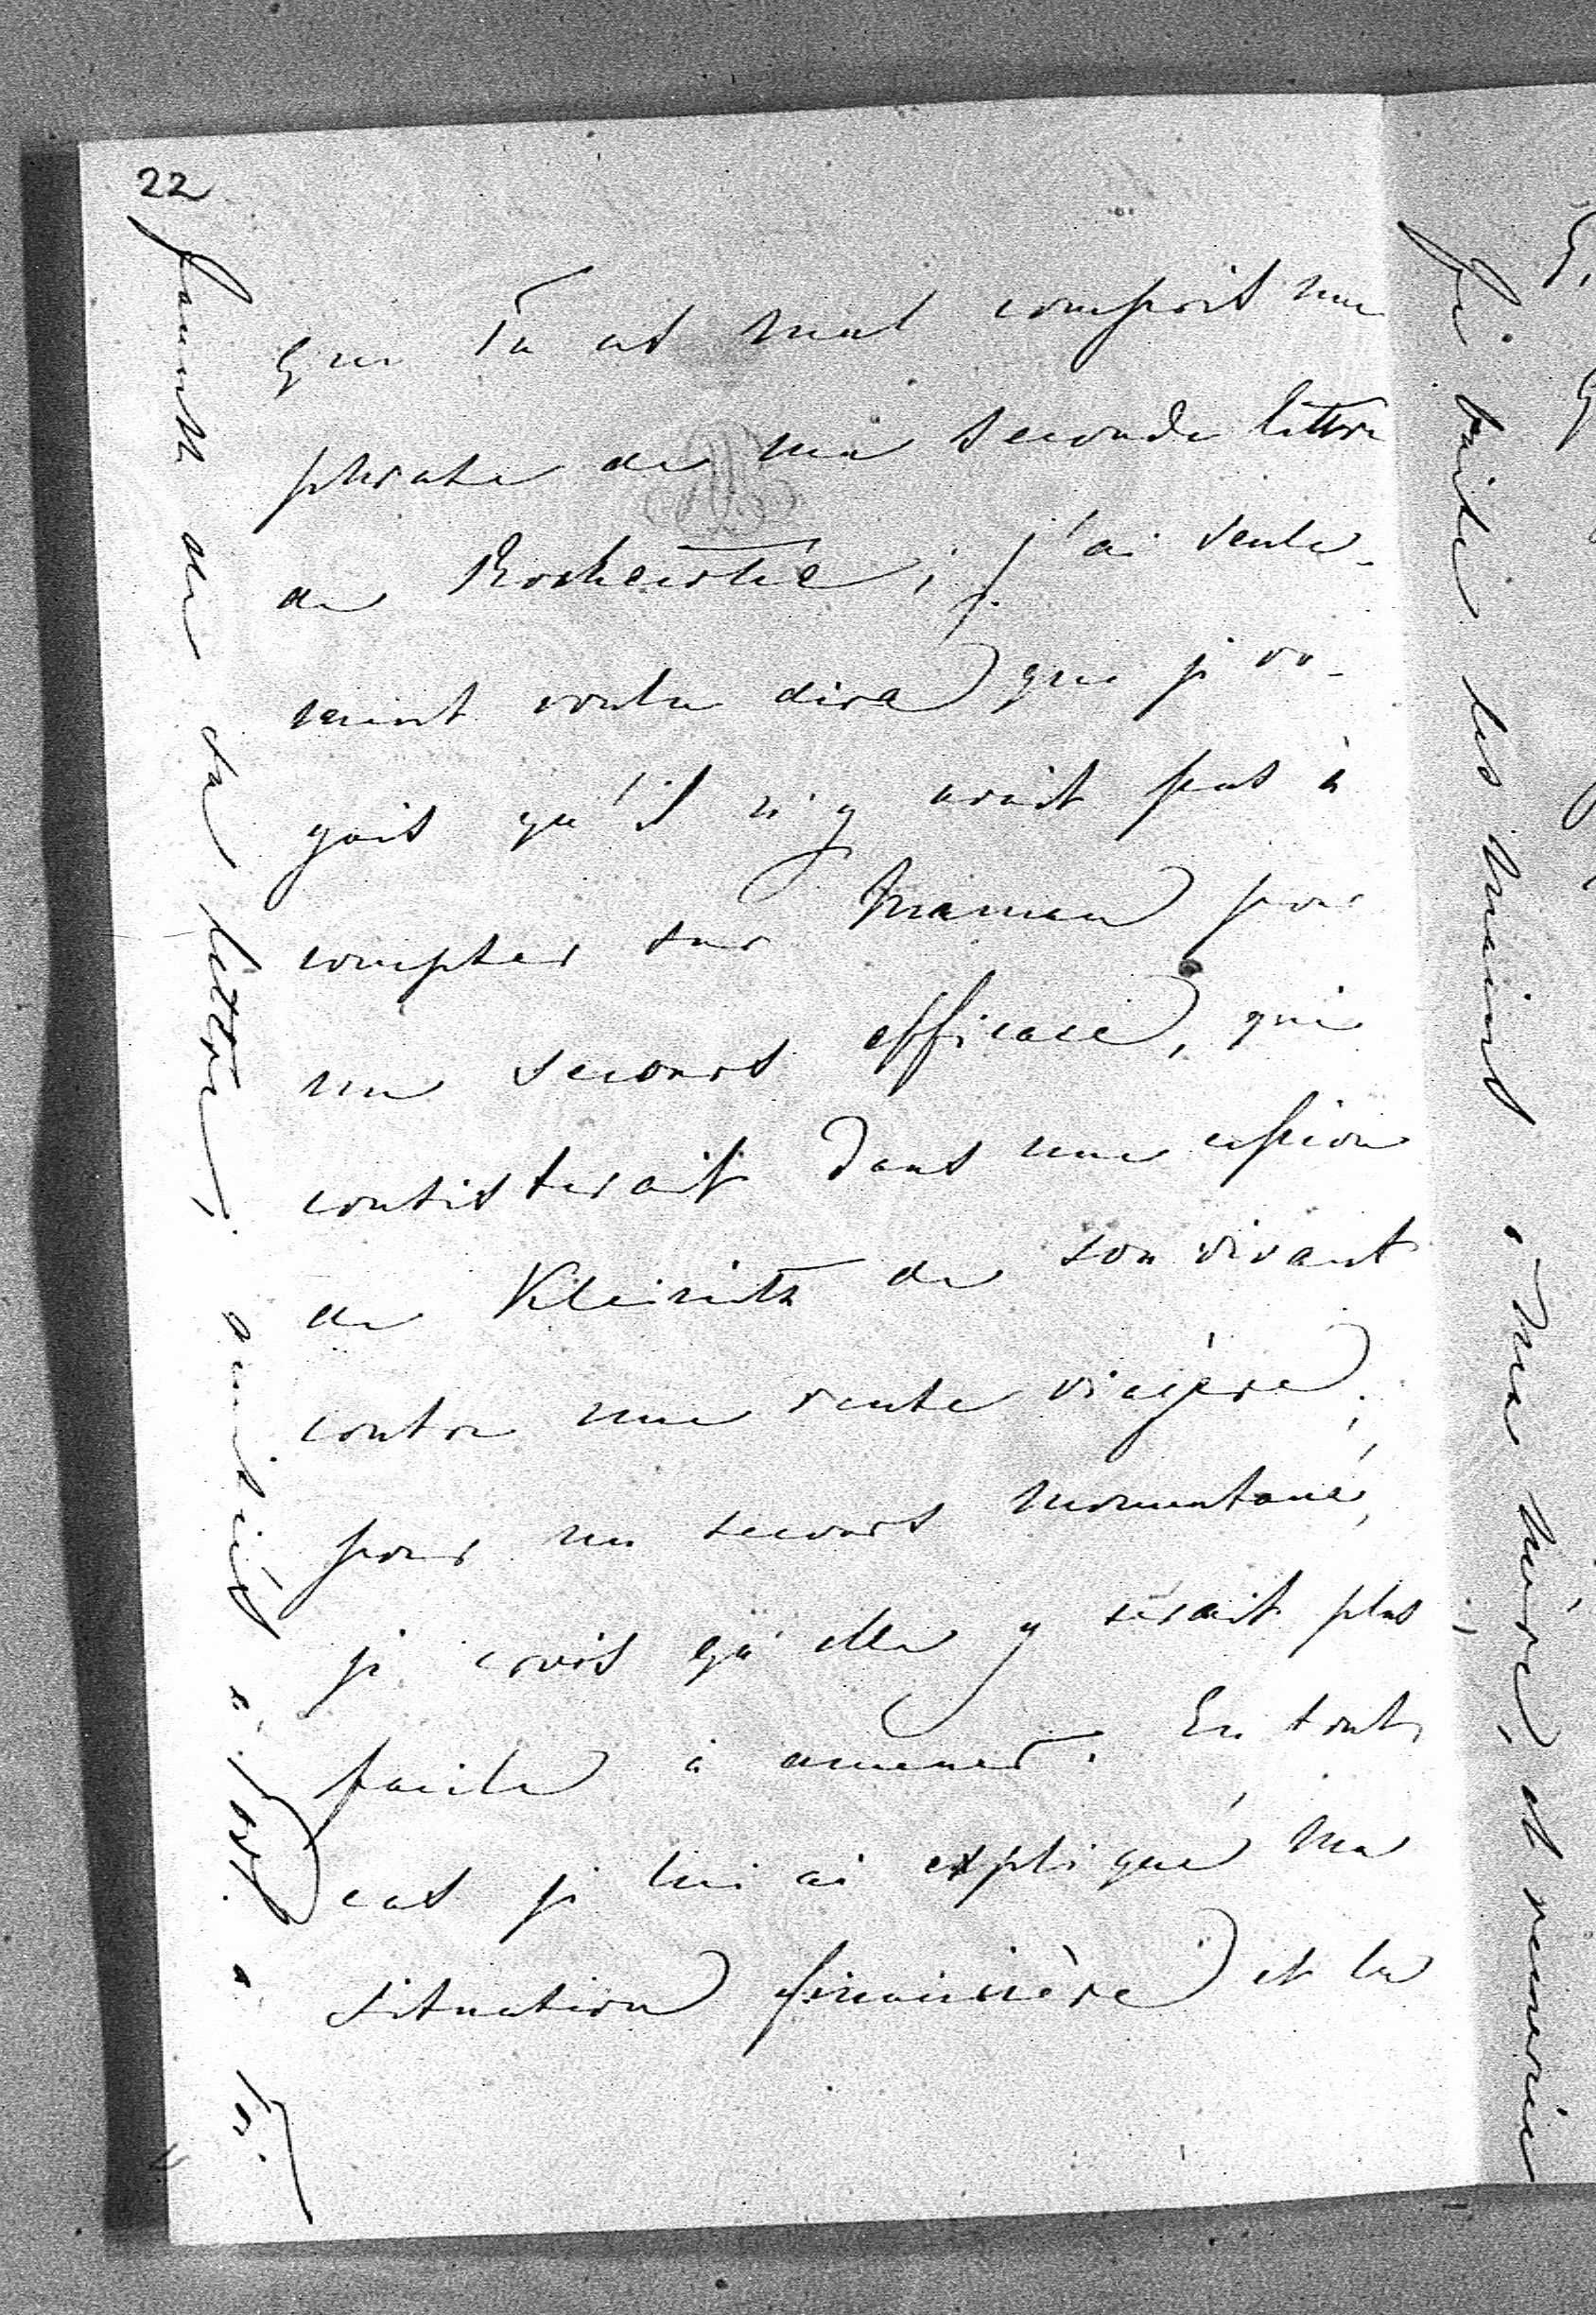 22
que Tu as mal compris une
phrase de ma seconde lettre
de ; j'ai seule-
ment voulu dire que je vo-
yais qu'il n'y avait pas à
compter sur Maman pour
un secours efficace, qui
consisterait dans une cession
de de son vivant
contre une rente viagère;
pour un secours momentané,
je crois qu'elle y serait plus
facile à amener. En tout
cas je lui ai expliqué ma
situation financière et la
famille de sa lettre; amitiés à
Je baise les mains à Ma mère, et remercie